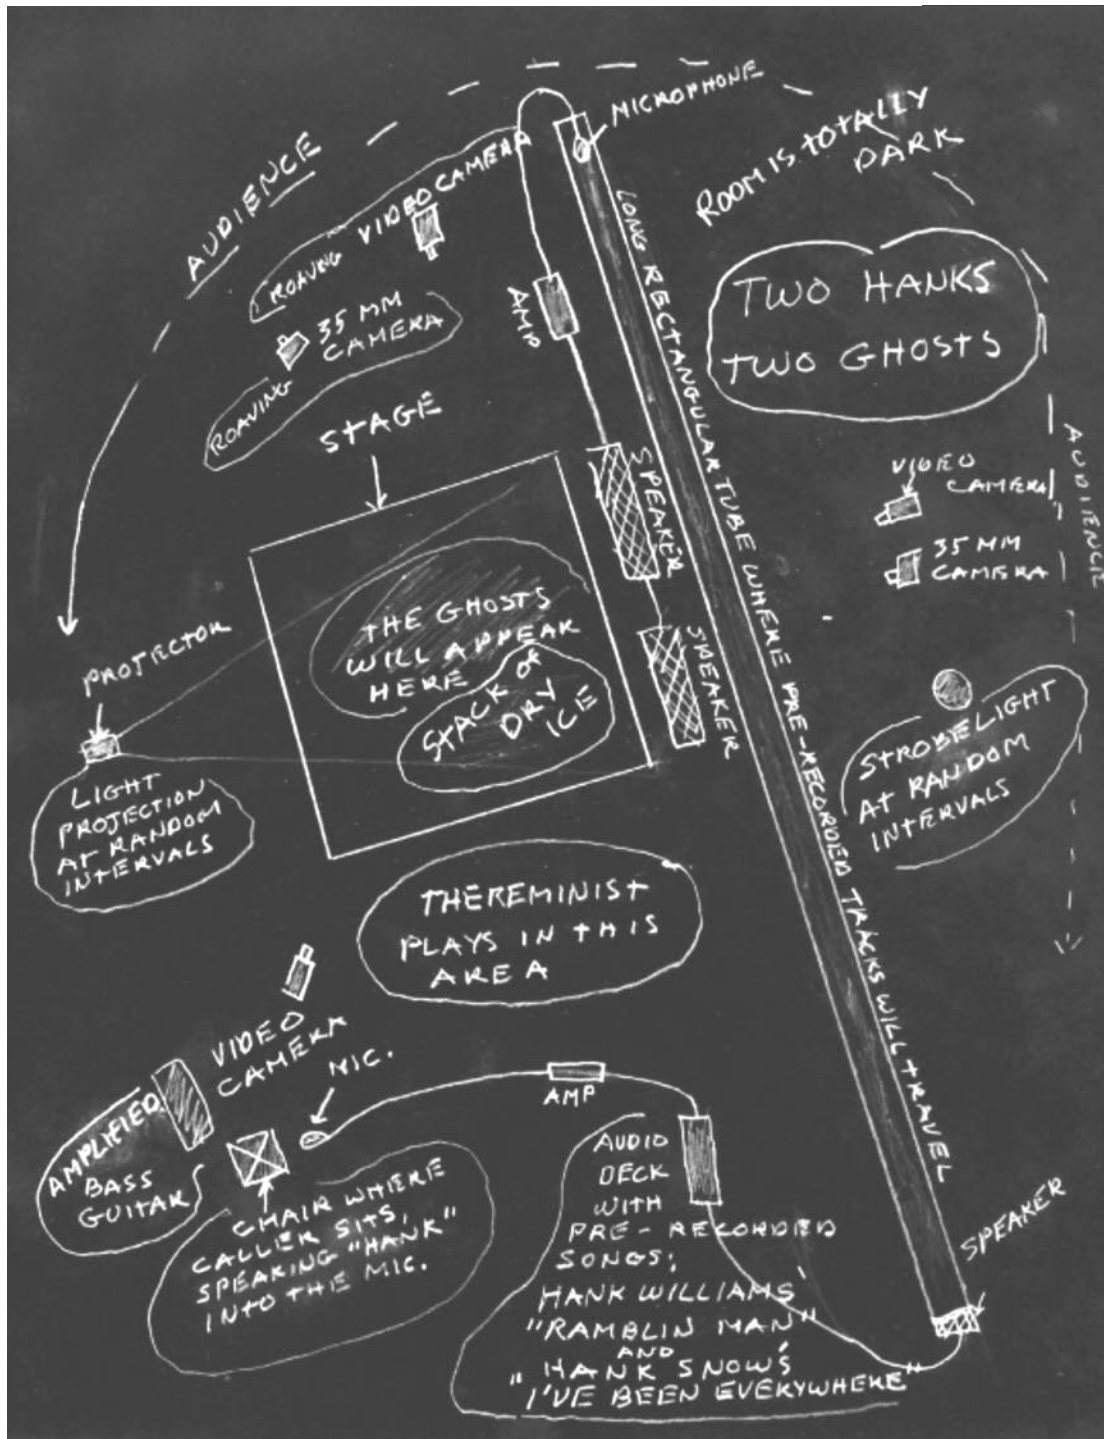 MICROPHONE
AUDIENCE
ROAVING VIDEO CAMERA
ROOM IS TOTALLY
DARK
ROAVING 35 MM
CAMERA
AMP
LONG RECTANGULAR TUBE WHERE PRE-RECORDED TRACKS WILL TRAVEL
TWO HANKS
TWO GHOSTS
STAGE
SPEAKER
VIDEO
CAMERA
35 MM
CAMERA
AUDIENCE
THE GHOSTS
WILL APPEAR
HERE
STACK OF
DRY
ICE
SPEAKER
PROJECTOR
LIGHT
PROJECTION
AT RANDOM
INTERVALS
STROBELIGHT
AT RANDOM
INTERVALS
THEREMINIST
PLAYS IN THIS
AREA
VIDEO
CAMERA
MIC.
AMP
AMPLIFIED
BASS
GUITAR
CHAIR WHERE
CALLER SITS,
SPEAKING "HANK"
INTO THE MIC.
AUDIO
DECK
WITH
PRE-RECORDED
SONGS:
HANK WILLIAMS'
"RAMBLIN MAN"
AND
"HANK SNOW'S
I'VE BEEN EVERYWHERE"
SPEAKER